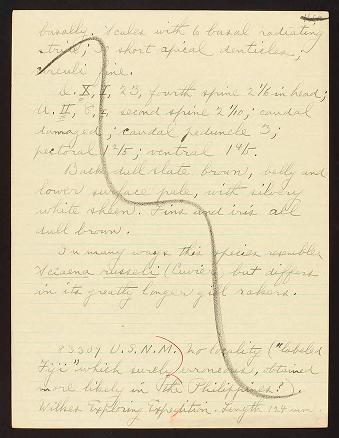 basally. Scales with 6 basal radiating
striae; short apical denticles;
circuli fine.
D. X, I, 23, fourth spine 2 1/6 in head;
A. II, 8, I, second spine 2 1/10; caudal
damaged; caudal peduncle 3;
pectoral 1 2/5; ventral
Back dull slate brown, belly and
lower surface pale, with silvery
white sheen. Fins and iris all
dull brown.
In many ways this species resembles
Sciaena russelli (Cuvier) but differs
in its greatly longer gill rakers.
83304 U.S.N.M. No locality ("labeled
Fiji" which surely erroneous, obtained
more likely in the Philippines?).
Wilkes Exploring Expedition. Length 124 mm.